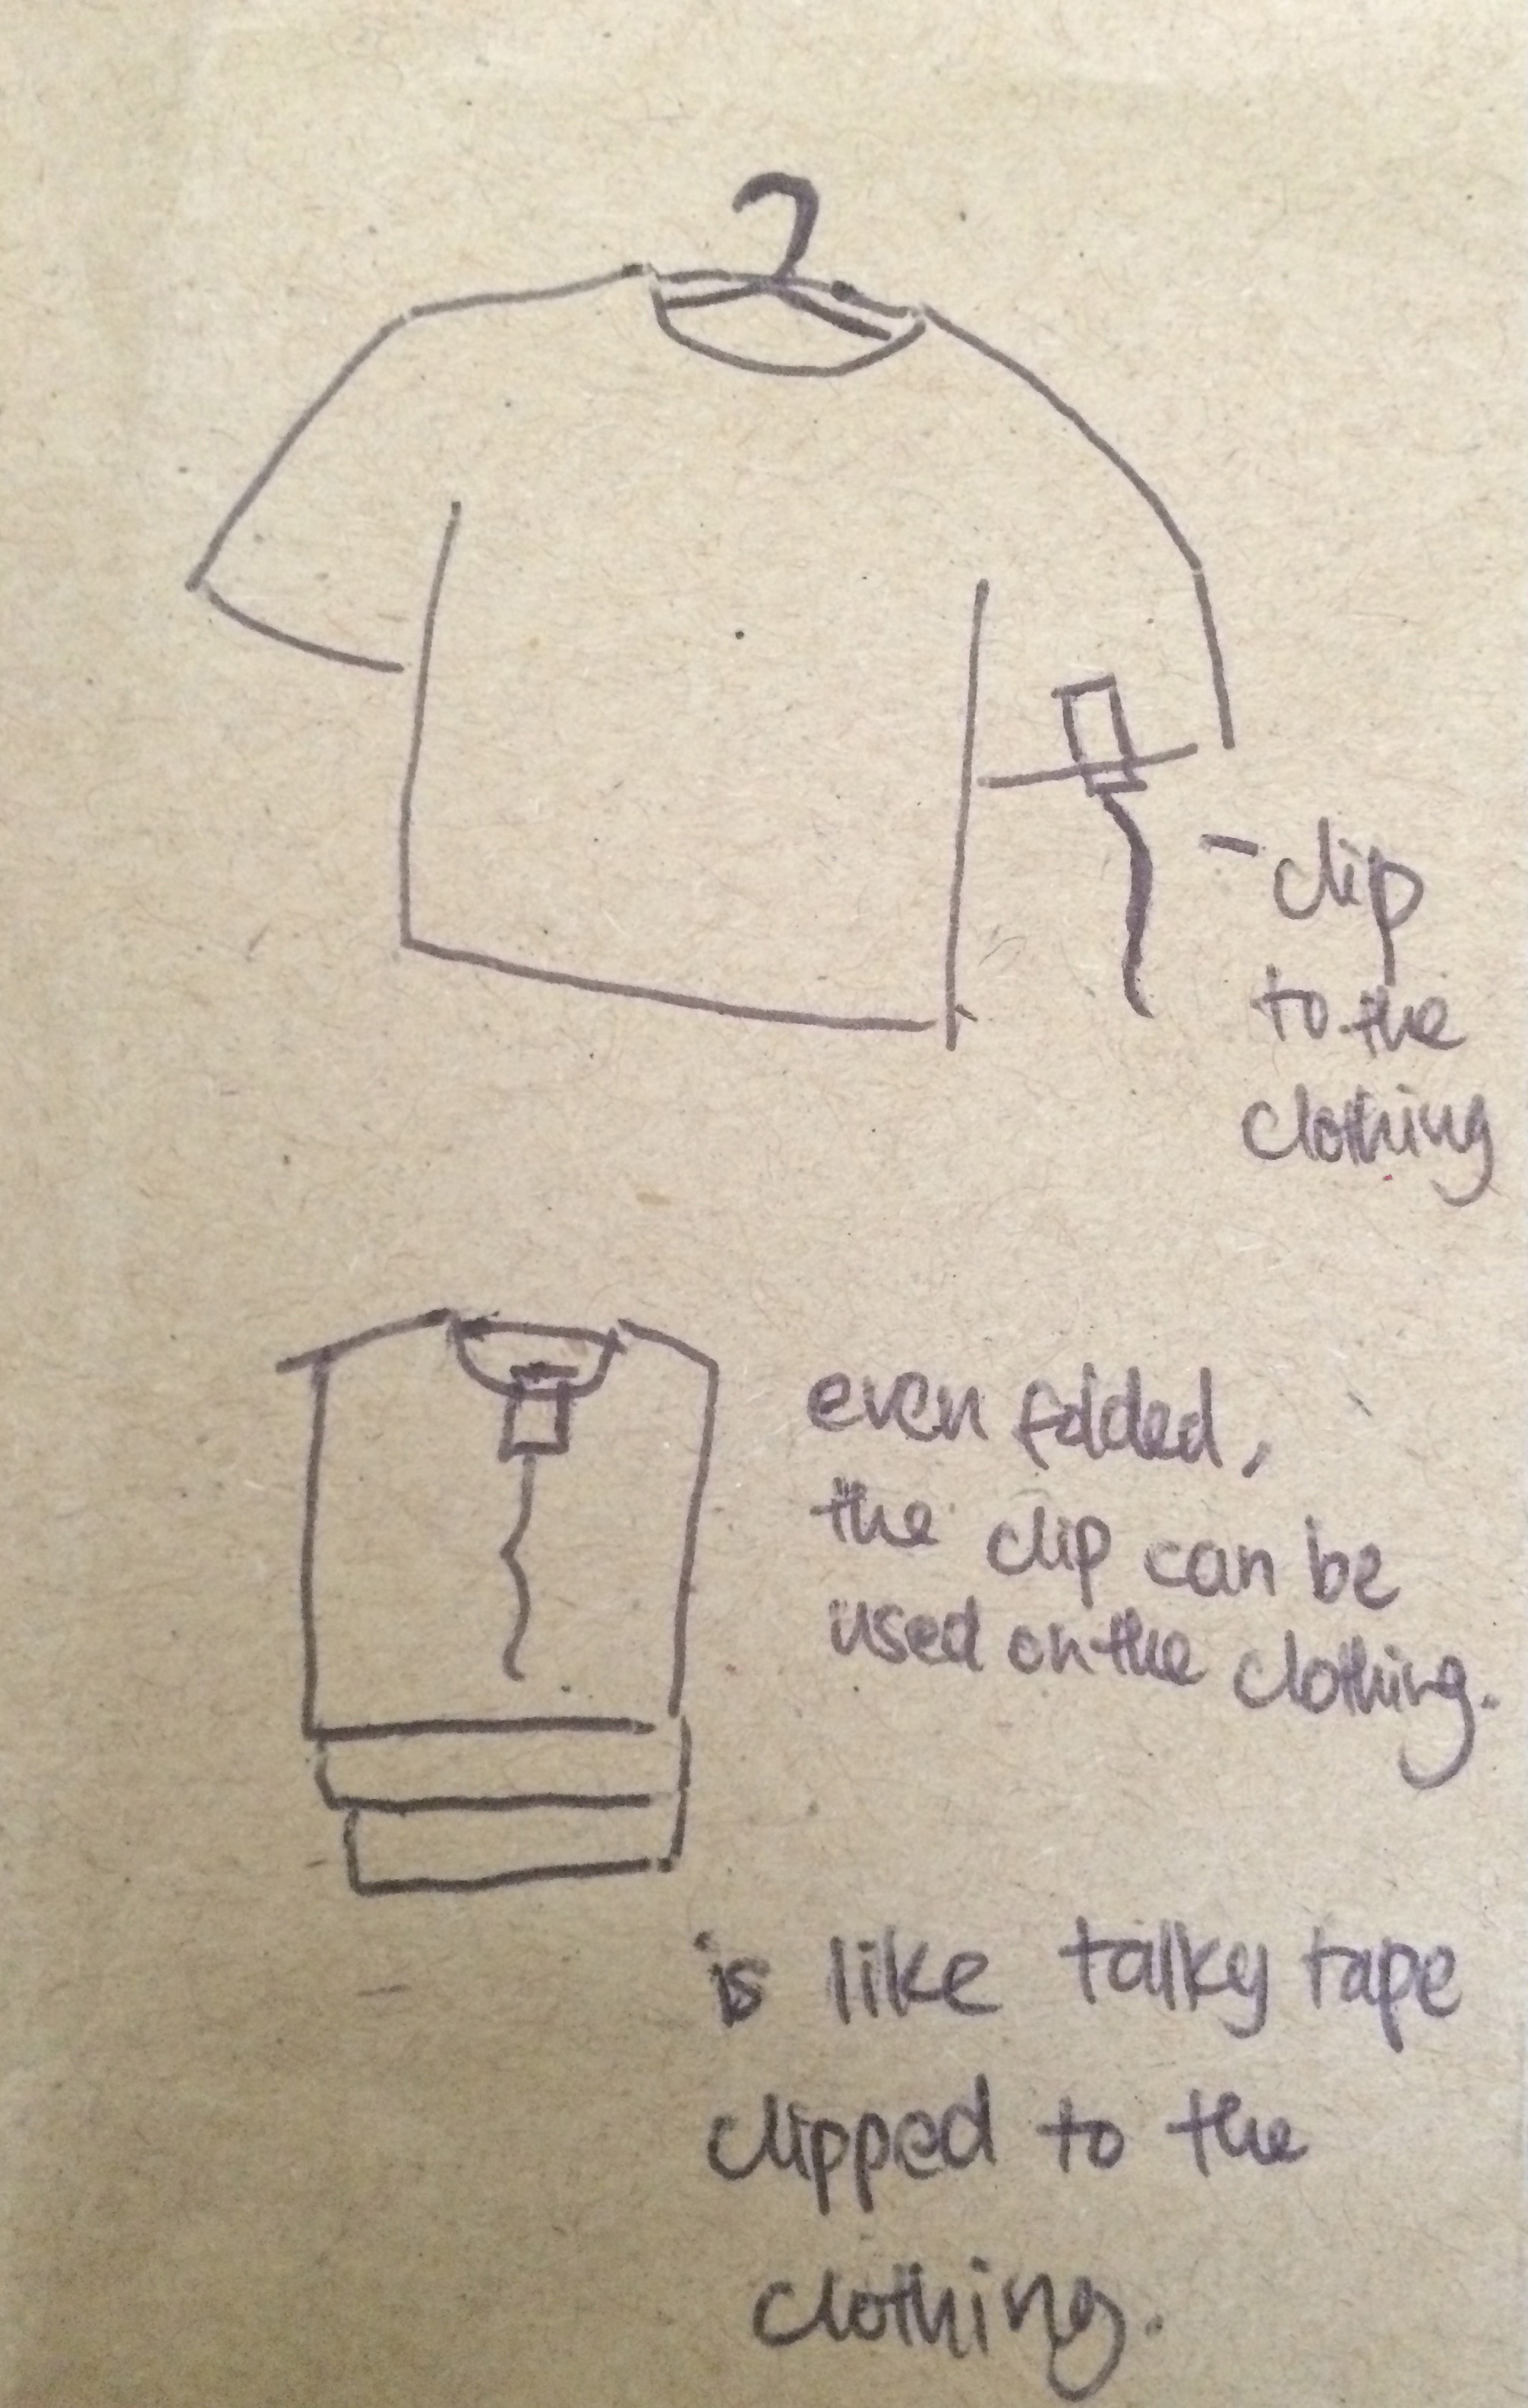 - clip
to the
clothing
even folded,
the clip can be
used on the clothing.
is like talky tape
clipped to the
clothing.